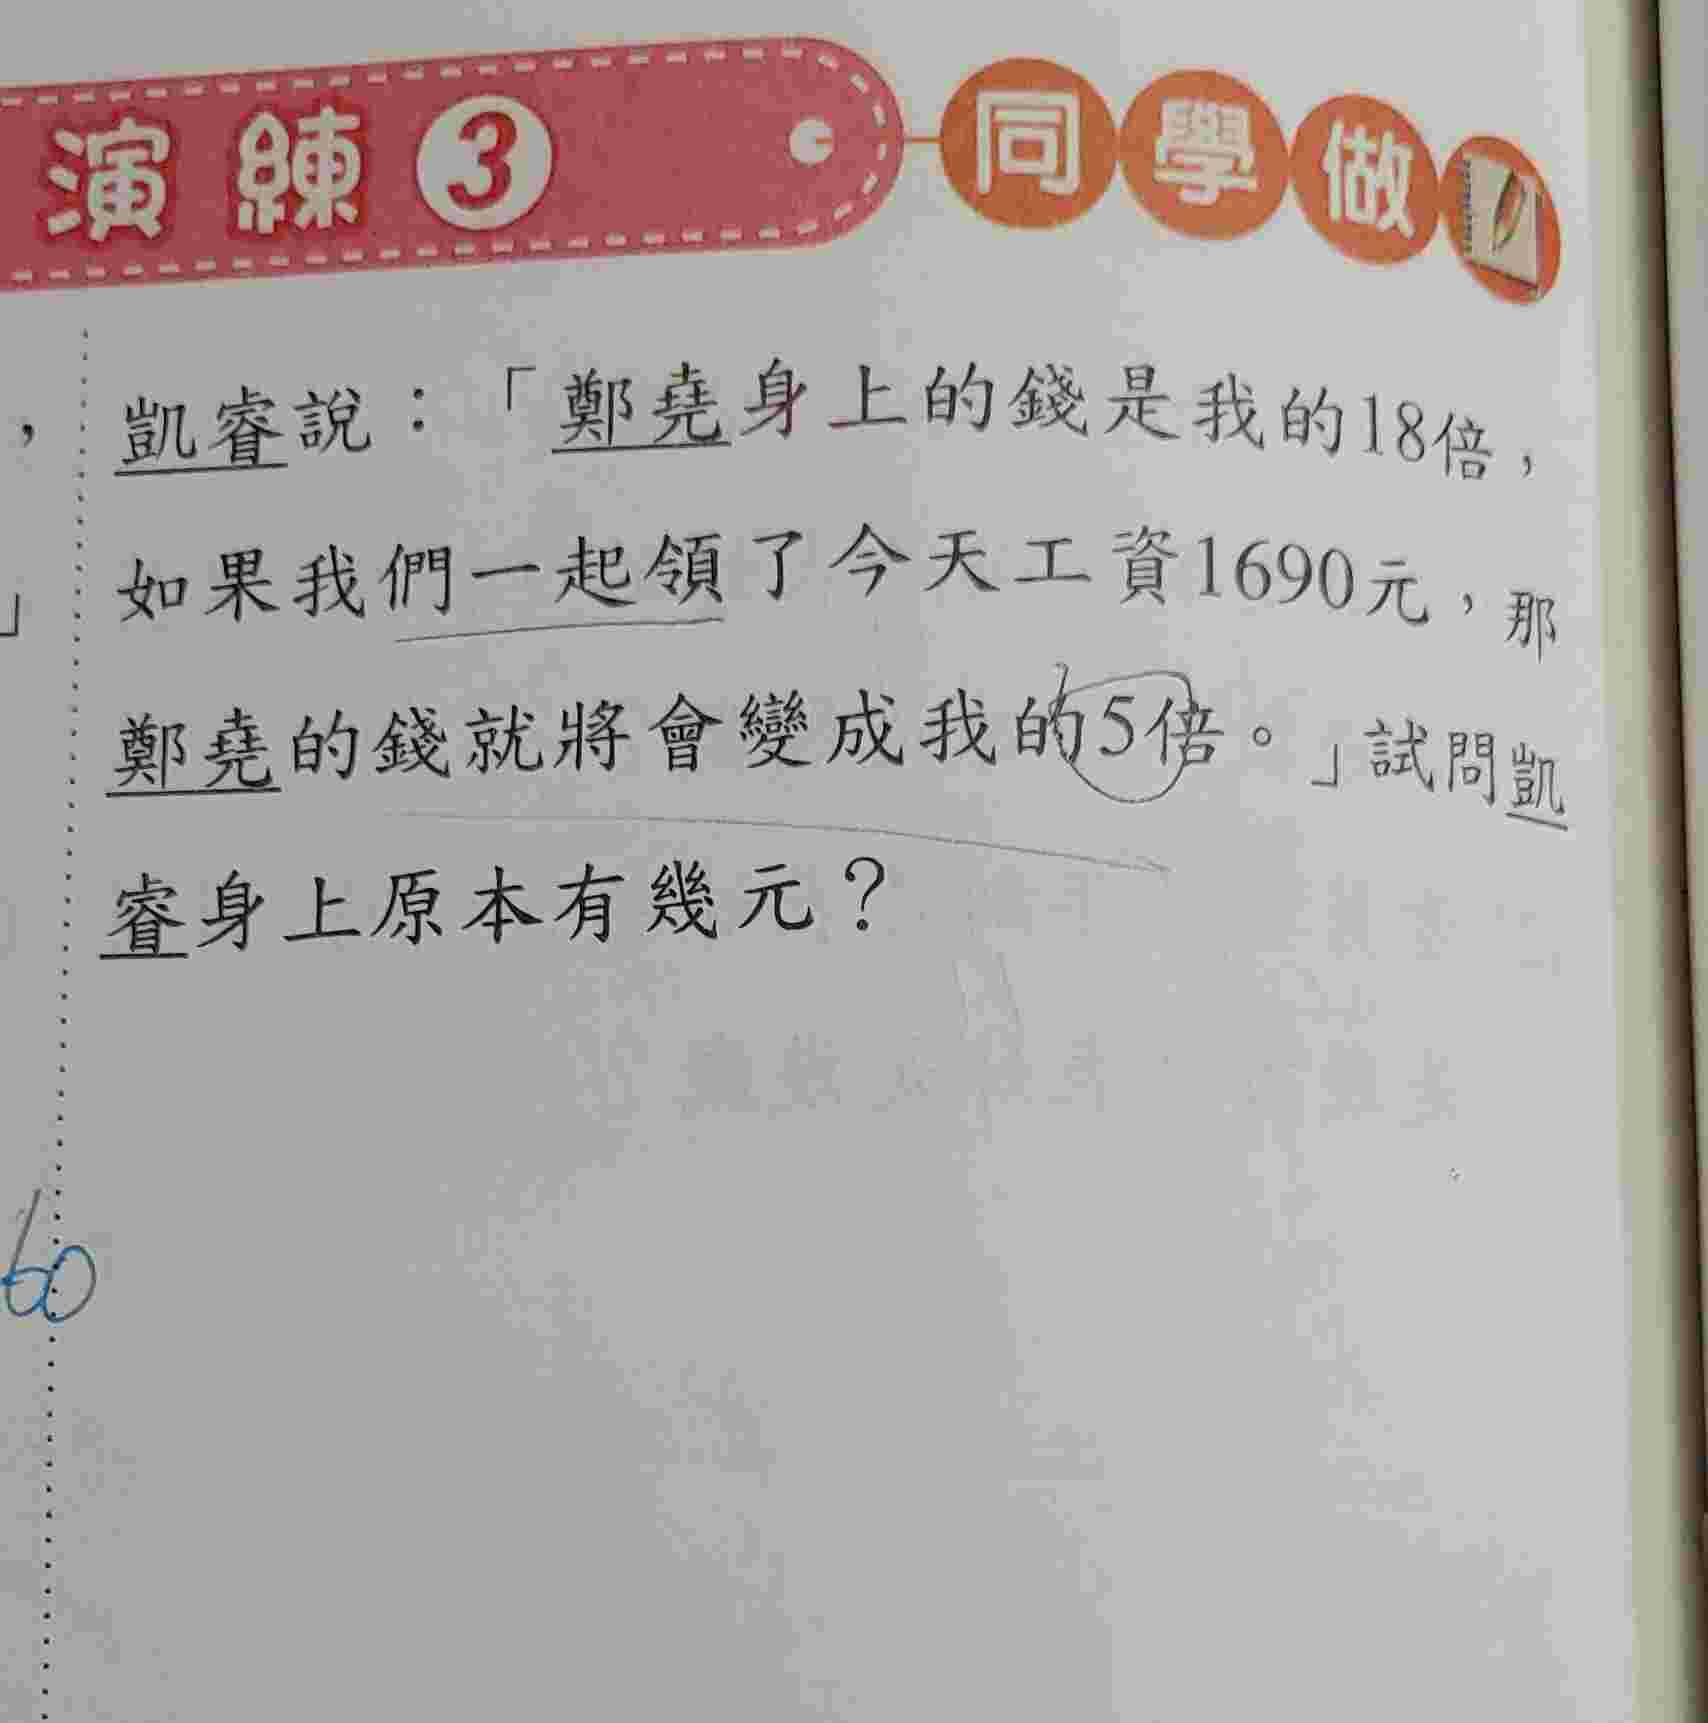 演練3 同學做
，凱睿說：「鄭堯身上的錢是我的18倍，
」如果我們一起領了今天工資1690元，那
鄭堯的錢就將會變成我的5倍。」試問凱
睿身上原本有幾元？
60